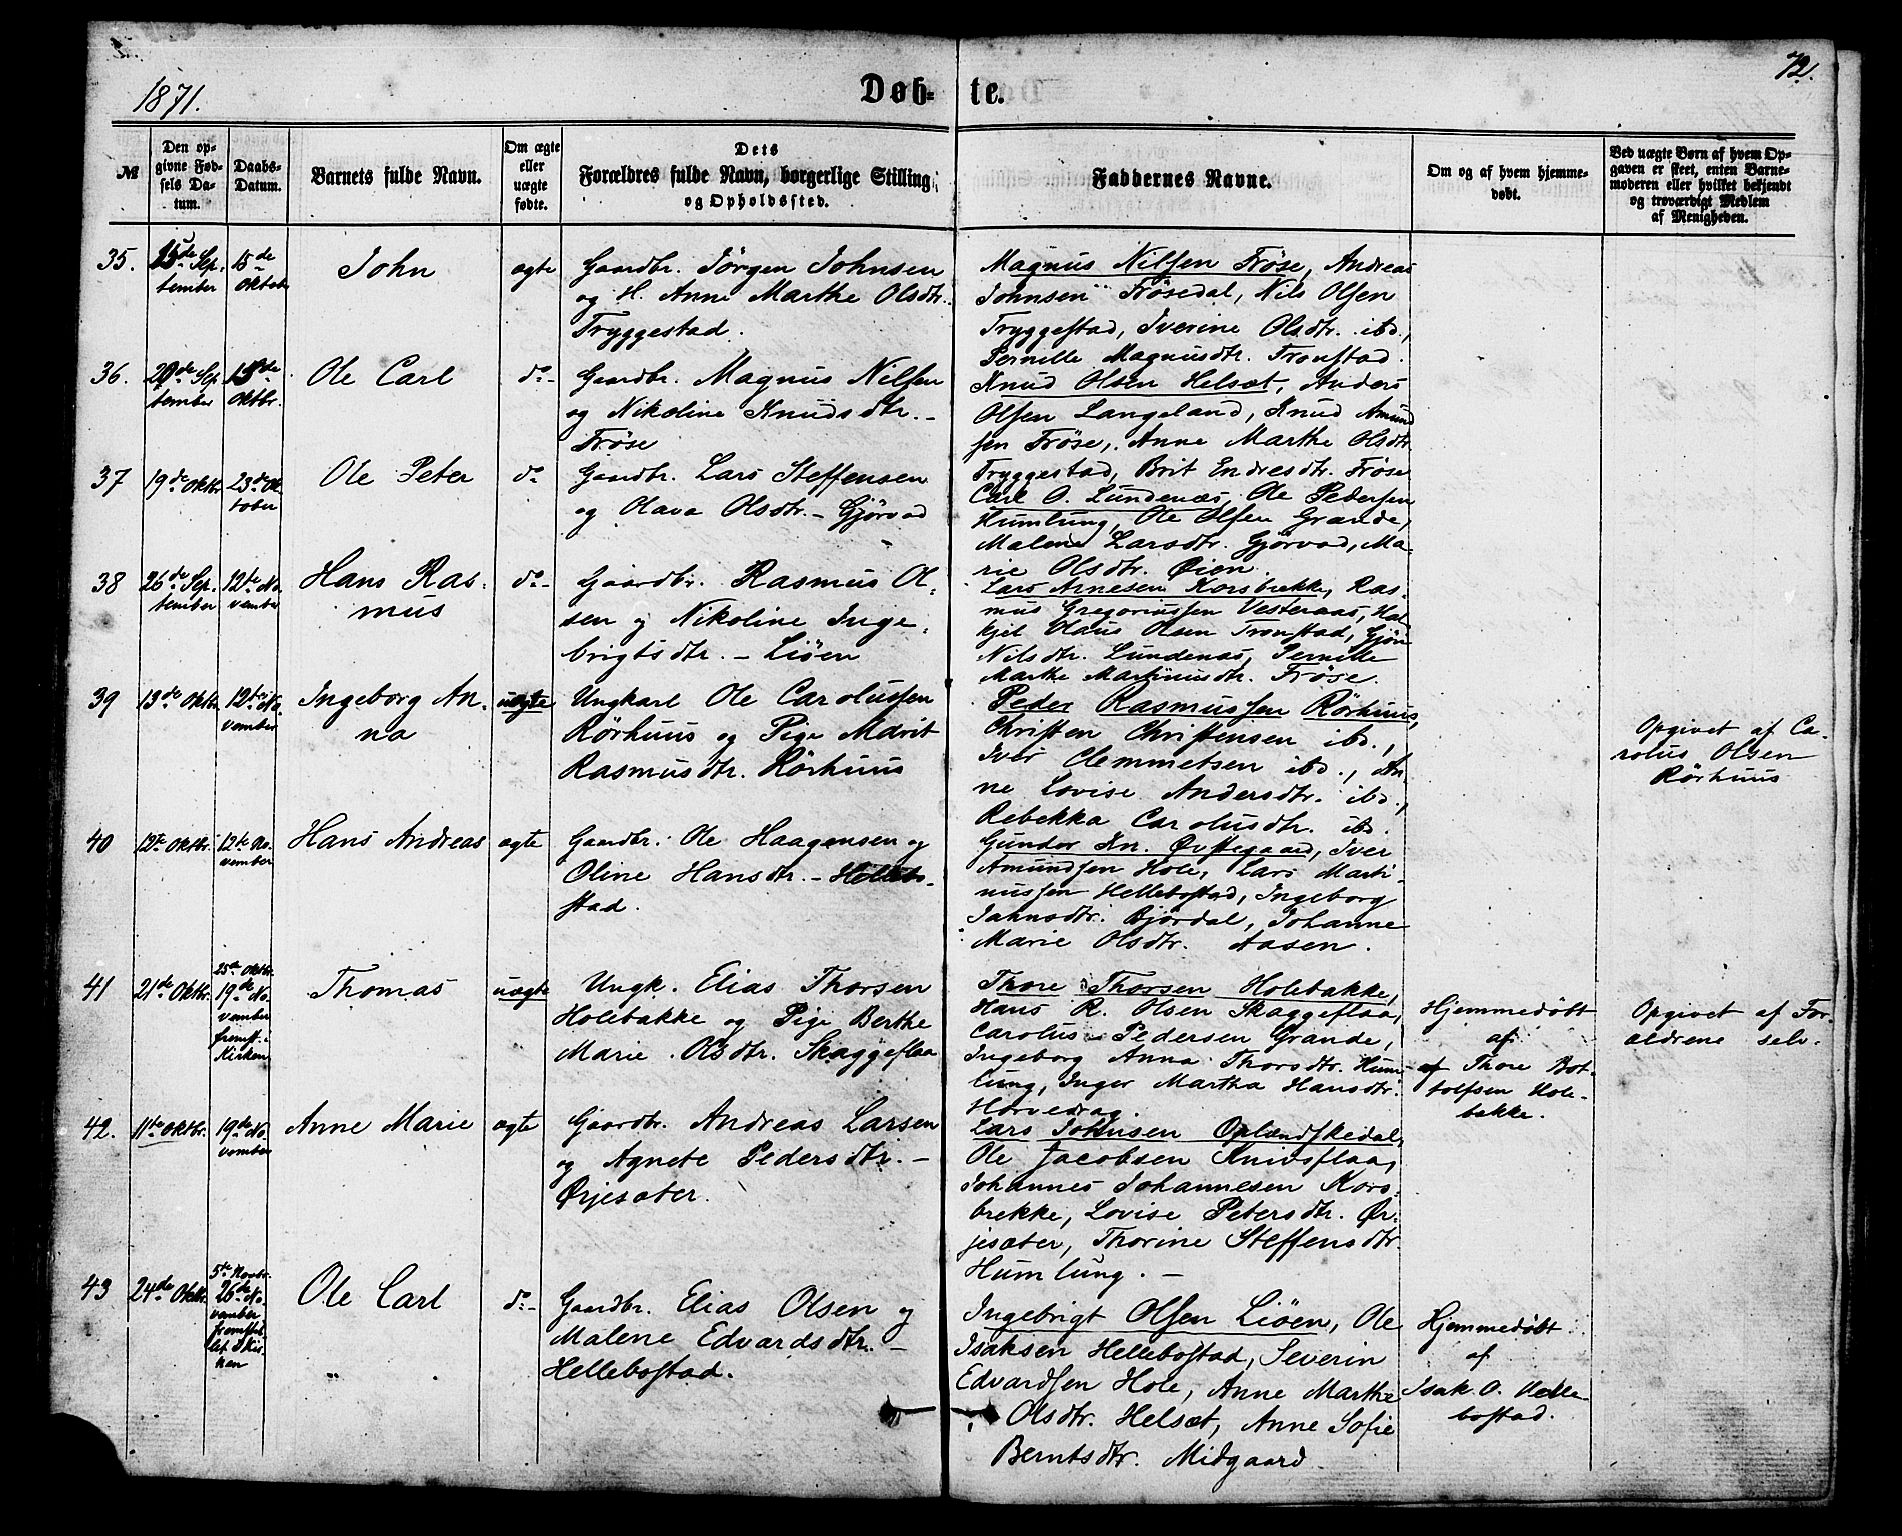 72.
1871.
Døb- te.
№
Den op-
givne Fød-
sels Da-
tum.
Daabs-
Datum.
Barnets fulde Navn.
Om ægte
eller
uægte
fødte.
Dets
Forældres fulde Navn, borgerlige Stilling
og Opholdssted.
Faddernes Navne.
Om og af hvem hjemme-
døbt.
Ved uægte Børn af hvem Op-
gaven er skeet, enten Barne-
moderen eller hvilket bekjendt
og troværdigt Medlem
af Menigheden.
35.
25de Sep-
tember
15de
Oktober
John
ægte
Gaardbr. Jörgen Johnsen
og H. Anne Marthe Olsdtr.
Tryggestad.
Magnus Nilsen Fröse, Andreas
Johnsen Frösedal, Nils Olsen
Tryggestad, Iverine Olsdtr. ibd.,
Pernille Magnusdtr. Tronstad.
36.
20de Sep
tember
15de
Oktbr.
Ole Carl
do-
Gaardbr. Magnus Nilsen
og Nikoline Knudsdtr. -
Fröse
Knud Olsen Helsæt, Anders
Olsen Langeland, Knud Amund
sen Fröse, Anne Marthe Olsdtr
Tryggestad, Brit Endresdtr. Fröse
37
19de Oktbr
23de Ok
tober
Ole Peter
do
Gaardbr. Lars Steffensen
og Olava Olsdtr. - Gjørvad
Carl O. Lundenæs, Ole Pedersen
Humlung, Ole Olsen Grande,
Malene Larsdtr. Gjørvad, Ma-
rie Olsdtr. Øien.
38
26de Sep-
tember
12te No
vember
Hans Ras-
mus
do-
Gaardbr. Rasmus Ol-
sen og Nikoline Inge-
brigtsdtr. - Liöen
Lars Arnesen Korsbrekke, Ras-
mus Gregoriussen Vesteraas, Hal
kjel Olaus Olsen Tronstad, Gjöri
Nilsdtr. Lundenæs, Pernille
Marthe Martinusdtr. Fröse.
39
13de Oktbr.
12te No-
vember
Ingeborg An-
na
uægte
Ungkarl Ole Carolussen
Rörhuus og Pige Marit
Rasmusdtr. Rörhuus
Peder Rasmussen Rörhuus,
Christen Christensen ibd.,
Iver Clemmetsen ibd., An-
ne Lovise Andersdtr. ibd.,
Rebekka Carolusdtr. ibd.
Opgivet af Ca-
rolus Olsen
Rörhuus
40
12te Oktbr.
12te No-
vember
Hans Andreas
ægte
Gaardbr. Ole Haagensen og
Oline Hansdtr. - Hellebo-
stad.
Gundor Kn. Øvstegaard, Iver
Amundsen Hole, Lars Marti-
nussen Hellebostad, Ingeborg
Jahnsdtr. Bjørdal, Johanne
Marie Olsdtr. Aasen.
41
21de Oktbr.
25de Oktbr.
19de No-
vember
fremst. i
Kirken
Thomas
uægte
Ungk. Elias Thorsen
Holebakke og Pige Berthe
Marie Olsdtr. Skaggeflaa
Thore Thorsen Holebakke,
Hans R. Olsen Skaggeflaa,
Carolus Pedersen Grande,
Ingeborg Anna Thorsdtr. Hum-
lung, Inger Martha Hansdtr.
Horvedrag.
Hjemmedöbt
af
af Thore Bot-
tolfsen Hole-
bakke.
Opgivet af For-
ældrene selv.
42.
11te Oktbr.
19de No-
vember
Anne Marie
ægte
Gaardbr. Andreas Larsen
og Agnete Pedersdtr. -
Ørjesæter.
Lars Johnsen Oplændskedal,
Ole Jacobsen Knivsflaa,
Johannes Johannesen Kors-
brekke, Lovise Petersdtr. Ør-
jesæter, Thorine Steffensdtr.
Humlung. -
43
24de Oktbr.
5te Novbr.
26de No-
vember
fremstil-
let i Kir-
ken
Ole Carl
do-
Gaardbr. Elias Olsen og
Malene Edvardsdtr. -
Hellebostad.
Ingebrigt Olsen Liöen, Ole
Isaksen Hellebostad, Severin
Edvardsen Hole, Anne Marthe
Olsdtr. Helsæt, Anne Sofie
Berntsdtr. Midgaard
Hjemmedöbt
af
Isak O. Helle-
bostad.